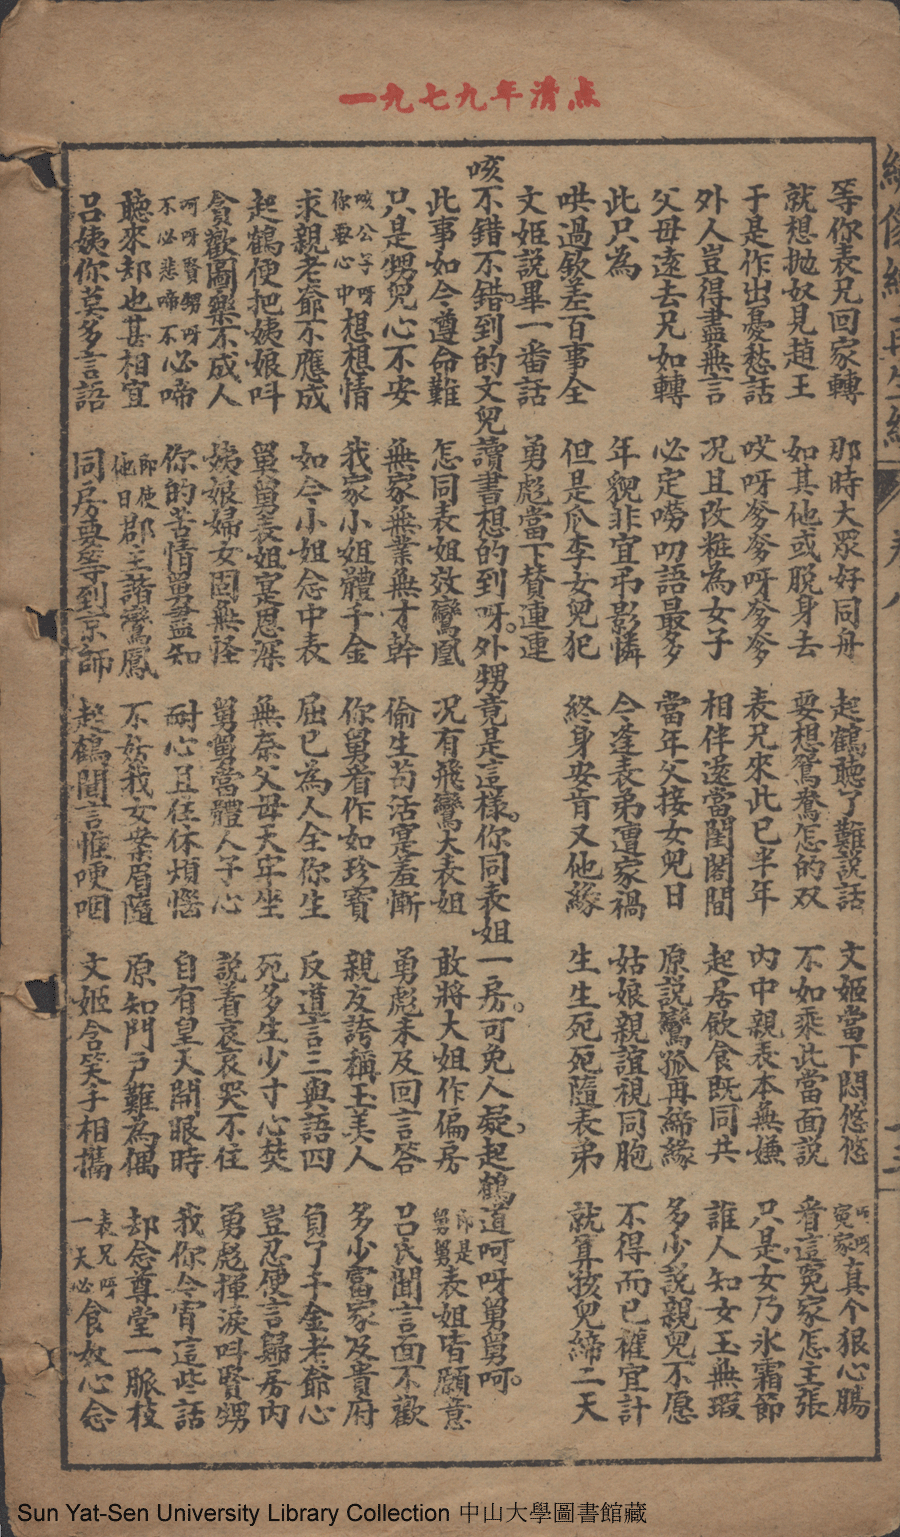 一九七九年清点
等你表兄回家轉　那時大眾好同舟　起鶴聽了難說話　文姬當下悶悠悠　呵呀冤家真个狠心腸
就想拋奴見趙王　如其他或脫身去　要想鴛鴦怎的双　不如乘此當面說　看這冤家怎主張
于是作出憂愁話　哎呀爹爹呀爹爹　表兄來此已半年　內中親表本無嫌　只是女乃氷霜節
外人豈得盡無言　况且改粧為女子　相伴還當閨閣間　起居飲食既同共　誰人知女玉無瑕
父母遠去兄如轉　必定嘮叨語最多　當年父接女兒日　原說鸞孤再締緣　多少說親兒不愿
此只為　年貌非宜弔影憐　今逢表弟遭家禍　姑娘親誼視同胞　不得而已權宜計
哄過欽差百事全　但是瓜李女兒犯　終身安肯又他緣　生生死死隨表弟　就算孩兒締二天
文姬說畢一番話　勇彪當下賛連連
咳不錯不錯。到的文兒讀書想的到呀。外甥竟是這樣。你同表姐一房。可免人疑。起鶴道呵呀舅舅呵。
此事如今遵命難　怎同表姐效鸞凰　况有飛鸞大表姐　敢將大姐作偏房　即是舅舅表姐皆願意
只是甥兒心不安　無家無業無才幹　偷生苟活寔羞慚　勇彪未及回言答　呂氏聞言面不歡
咳公子呀你要心中想想情　我家小姐體千金　你舅看作如珍寶　親友誇稱玉美人　多少富家及貴府
求親老爺不應成　如今小姐念中表　屈已為人全你生　反道言三與語四　負了千金老爺心
起鶴便把姨娘呌　舅舅表姐寔恩深　無奈父母天牢坐　死多生少寸心焚　豈忍便言歸房內
貪歡圖樂不成人　姨娘婦女固無怪　舅舅當體人子心　說着哀哀哭不住　勇彪揮淚呌賢甥
呵呀賢甥呀不必悲啼不必啼　你的苦情舅盡知　耐心且在休煩惱　自有皇天開眼時　我你今宵這些話
聽來却也甚相宜　即使他日郡主諧鸞鳳　不妨我女案眉隨　原知門戶難為偶　却念尊堂一脈枝
呂姨你莫多言語　同房要等到京師　起鶴聞言惟哽咽　文姬含笑手相攜　表兄呀一天必食奴心念
Sun Yat-Sen University Library Collection 中山大學圖書館藏